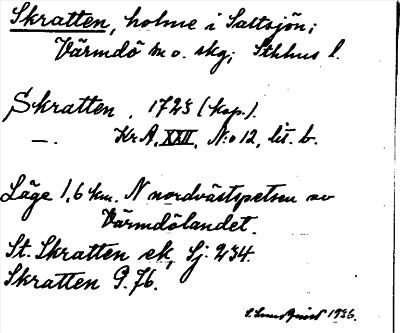 Skratten, holme i Saltsjön;
Värmdö m o. skg; Sthlms l.
Skratten, 1725 (kop.).
—. Kr A, XXII, N:o 12, lit. b.
Läge 1,6 km. N nordvästspetsen av
Värmdölandet.
St. Skratten ek, Sj: 234.
Skratten G. 76.
1936.